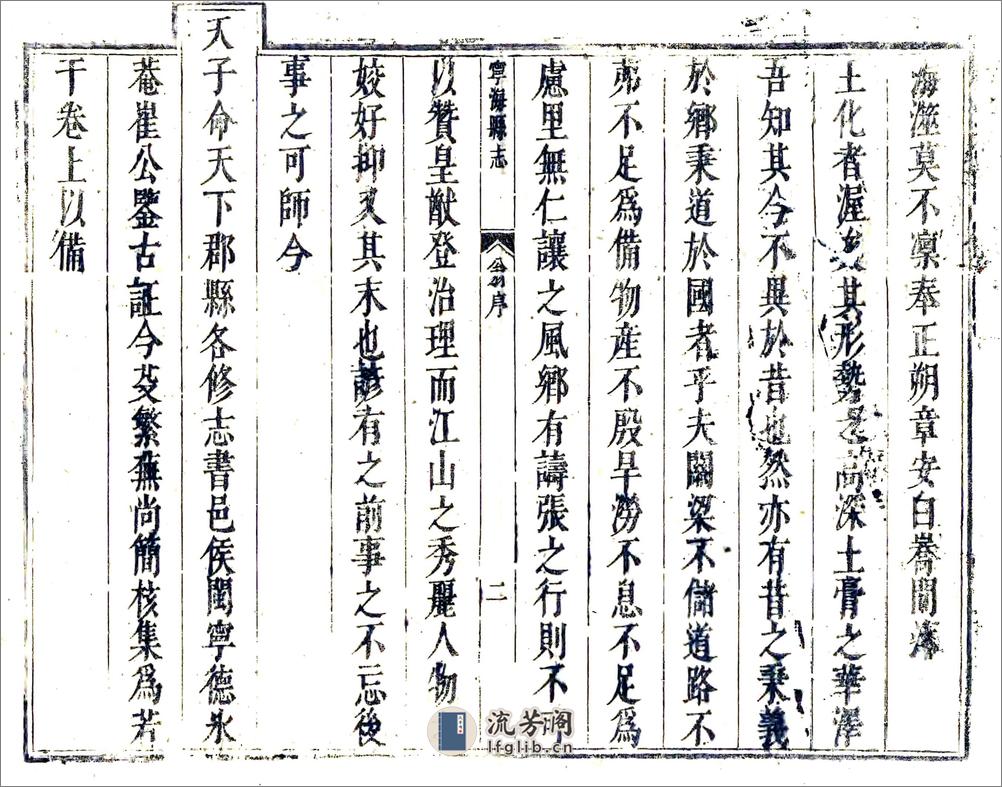 海澨莫不凛奉正朔章安白嶠間沐
土化者渥矣其形勢之高深土膏之華澤
吾知其今不異於昔也然亦有昔之秉義
於鄉秉道於國者乎夫關梁不儲道路不
茀不足爲備物產不殷旱澇不息不足爲
慮里無仁讓之風鄉有譸張之行則不
寧海縣志 翁序 二
以贊皇猷登治理而江山之秀麗人物
姣好抑又其末也諺有之前事之不忘後
事之可師今
天子命天下郡縣各修志書邑侯閩寧德氷
菴崔公鑒古証今芟繁蕪尚簡核集爲若
干卷上以備
流芳阁
lfglib.cn